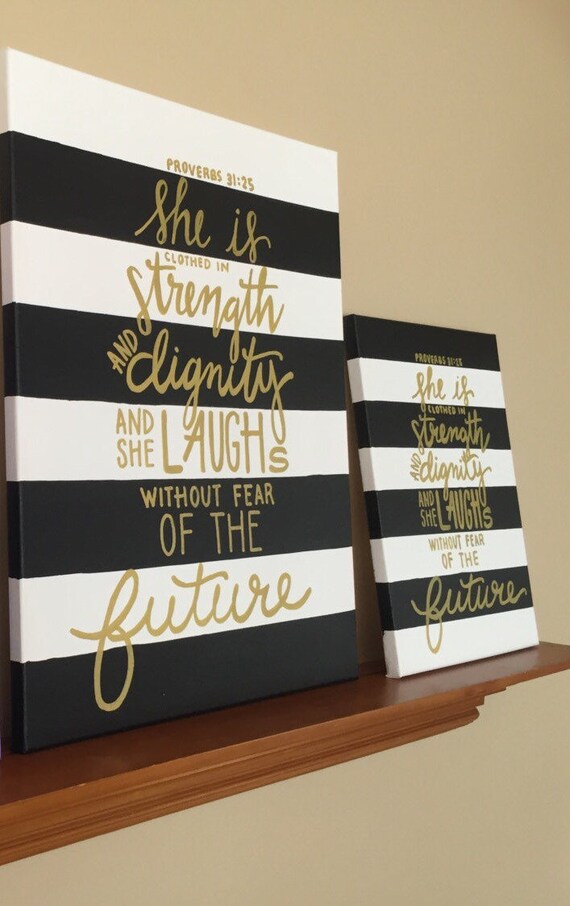 PROVERBS 31:25
She is
CLOTHED IN
strength
AND dignity
AND SHE LAUGHS
WITHOUT FEAR
OF THE
future
PROVERBS 31:25
She is
CLOTHED IN
strength
AND dignity
AND SHE LAUGHS
WITHOUT FEAR
OF THE
future